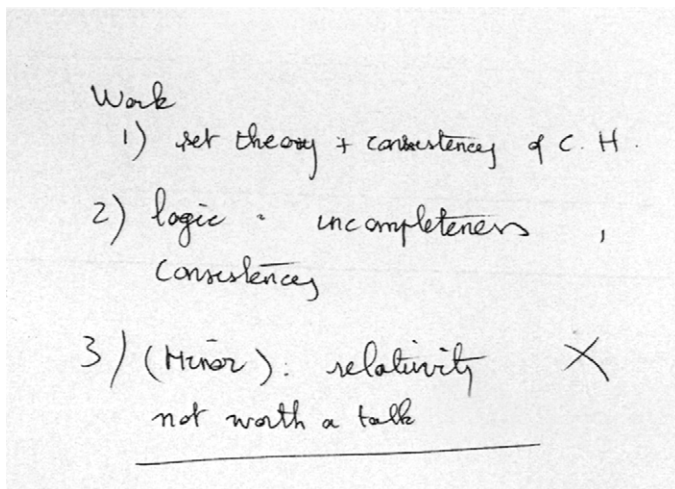 Work
1) set theory + consistency of C. H.
2) logic - incompleteness,
consistency
3) (Minor): relativity X
not worth a talk